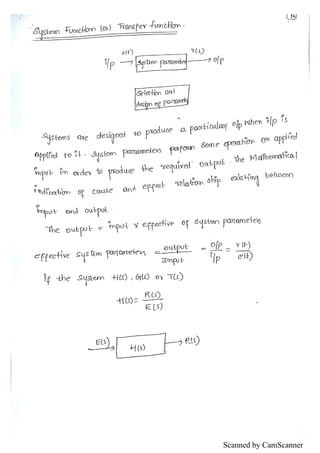 (15)
System Function (or) Transfer function.
e(t) r(t)
i/p System parameter o/p
Selection and
design of parameter
Systems are designed to produce a particular o/p when i/p is
applied to it. System parameters perform some operation on applied
input in order to produce the required output. The Mathematical
indication of cause and effect relation ship existing between
input and output.
The output = input x effective of system parameters
effective system parameters = output / Input = o/p / i/p = r(t) / e(t)
if the system H(s), G(s) or T(s)
H(s) = R(s) / E(s)
E(s) H(s) R(s)
Scanned by CamScanner